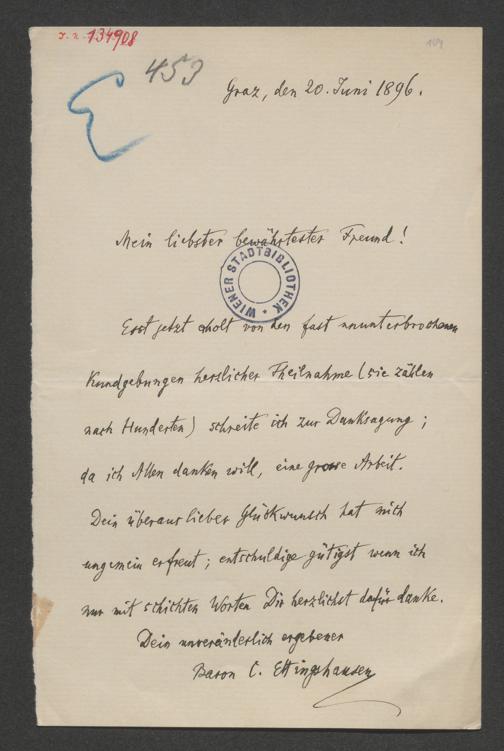 J. N. 134908
169
453
Graz, den 20. Juni 1896.
Mein liebster bewährtester Freund!
WIENER STADTBIBLIOTHEK
Erst jetzt erholt von den fast ununterbrochenen
Kundgebungen herzlicher Theilnahme (sie zählen
nach Hunderten) schreite ich zur Danksagung;
da ich Allen danken will, eine grosse Arbeit.
Dein überaus lieber Glückwunsch hat mich
ungemein erfreut; entschuldige gütigst wenn ich
nur mit schlichten Worten Dir herzlichst dafür danke.
Dein unveränderlich ergebener
Baron C. Ettingshausen